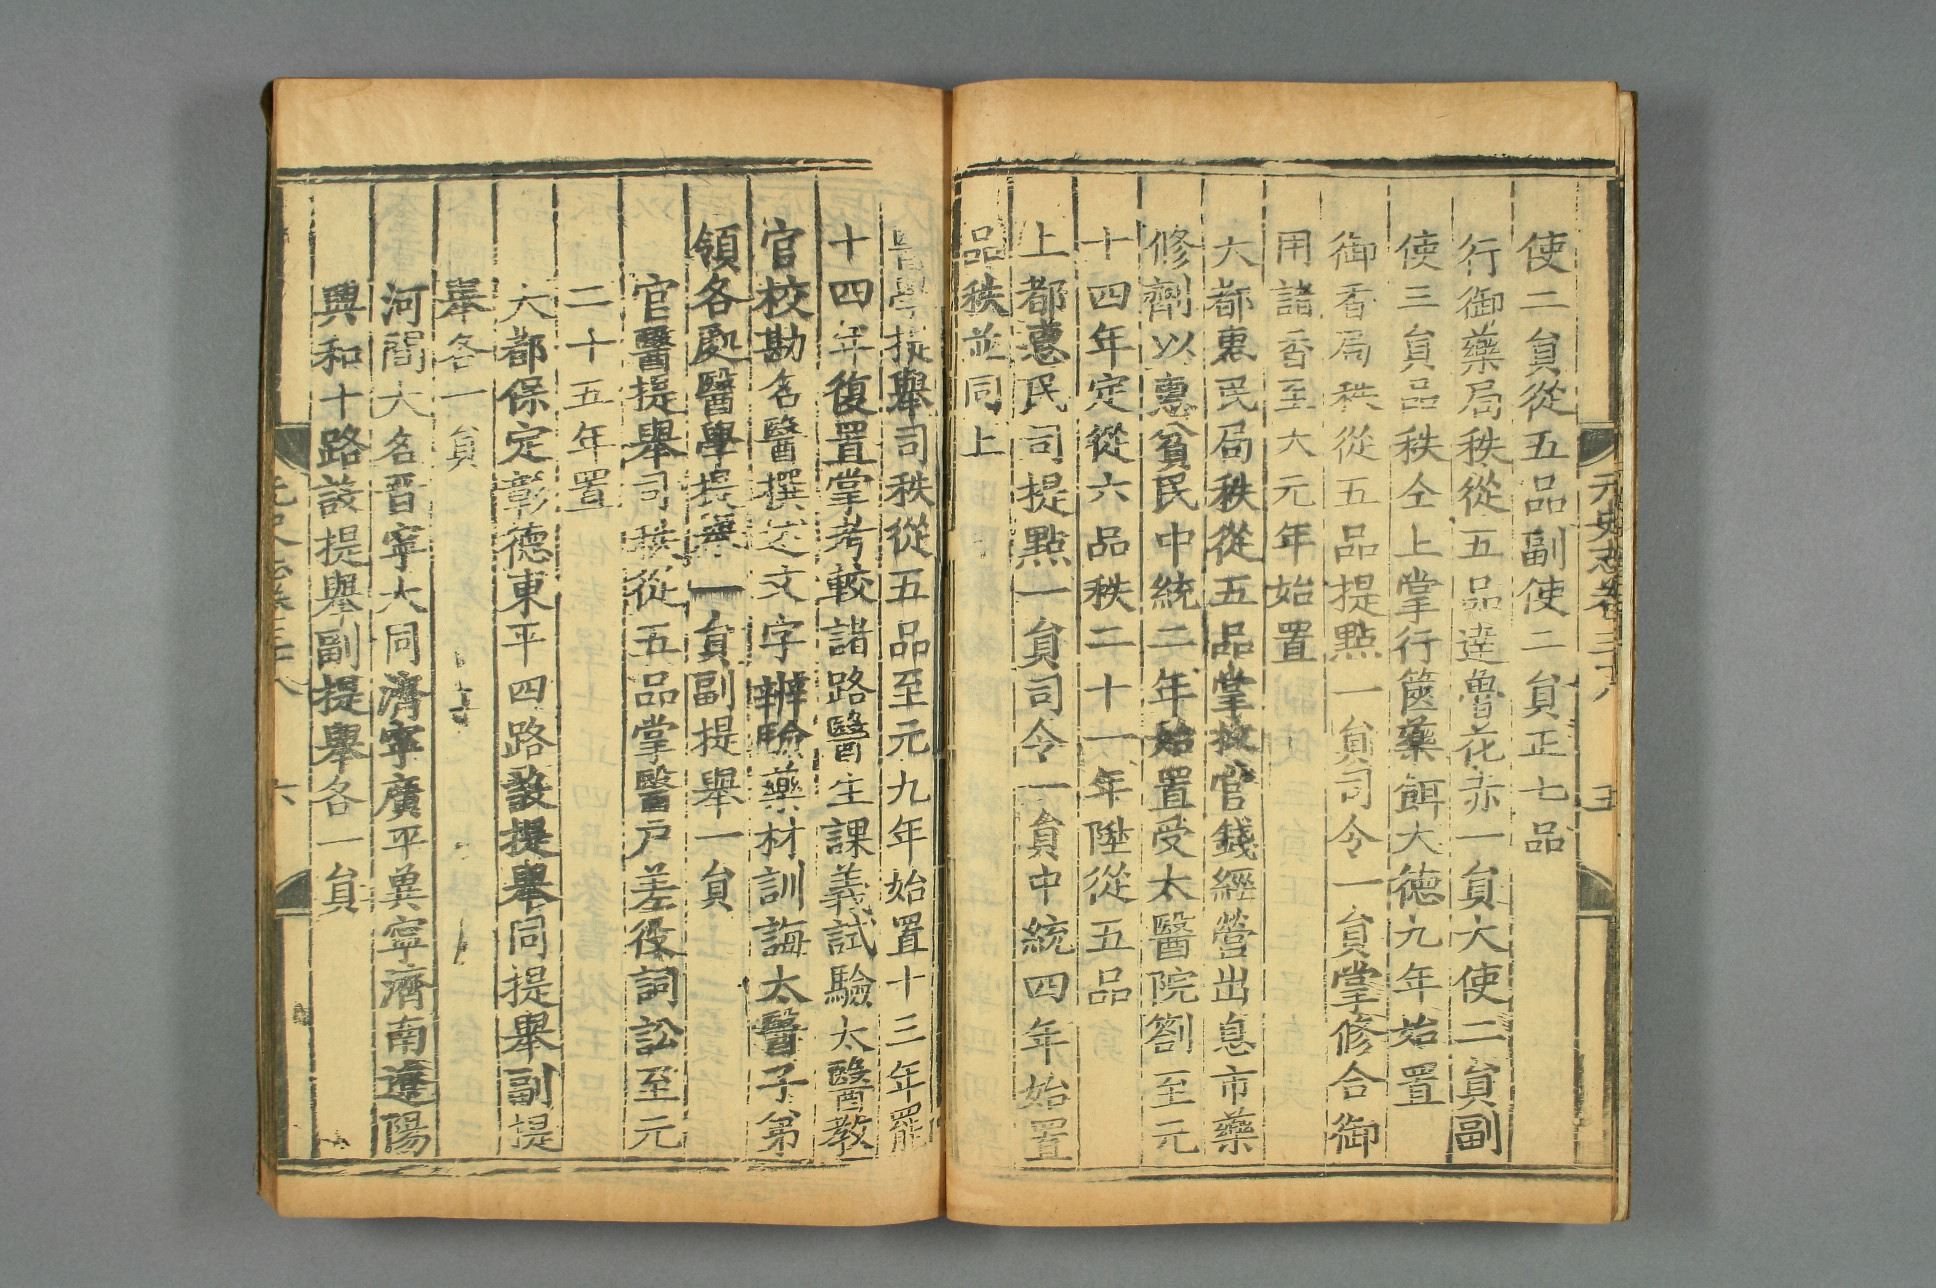 元史志卷三十八 五
使二貟從五品副使二貟正七品
行御藥局秩從五品達魯花赤一貟大使二貟副
使三貟品秩仝上掌行篋藥餌大德九年始置
御香局秩從五品提點一貟司令一貟掌修合御
用諸香至大元年始置
大都惠民局秩從五品掌收官錢經營出息市藥
修劑以惠貧民中統二年始置受太醫院劄至元
十四年定從六品秩二十一年陞從五品
上都惠民司提點一貟司令一貟中統四年始置
品秩並同上
醫學提舉司秩從五品至元九年始置十三年罷
十四年復置掌考較諸路醫生課義試驗太醫教
官校勘名醫撰述文字辨驗藥材訓誨太醫子弟
領各處醫學提舉一貟副提舉一貟
官醫提舉司秩從五品掌醫戸差役詞訟至元
二十五年置
大都保定彰德東平四路設提舉同提舉副提
舉各一貟
河間大名晋寧大同濟寧廣平冀寧濟南遼陽
興和十路設提舉副提舉各一貟
元史志卷三十八 六